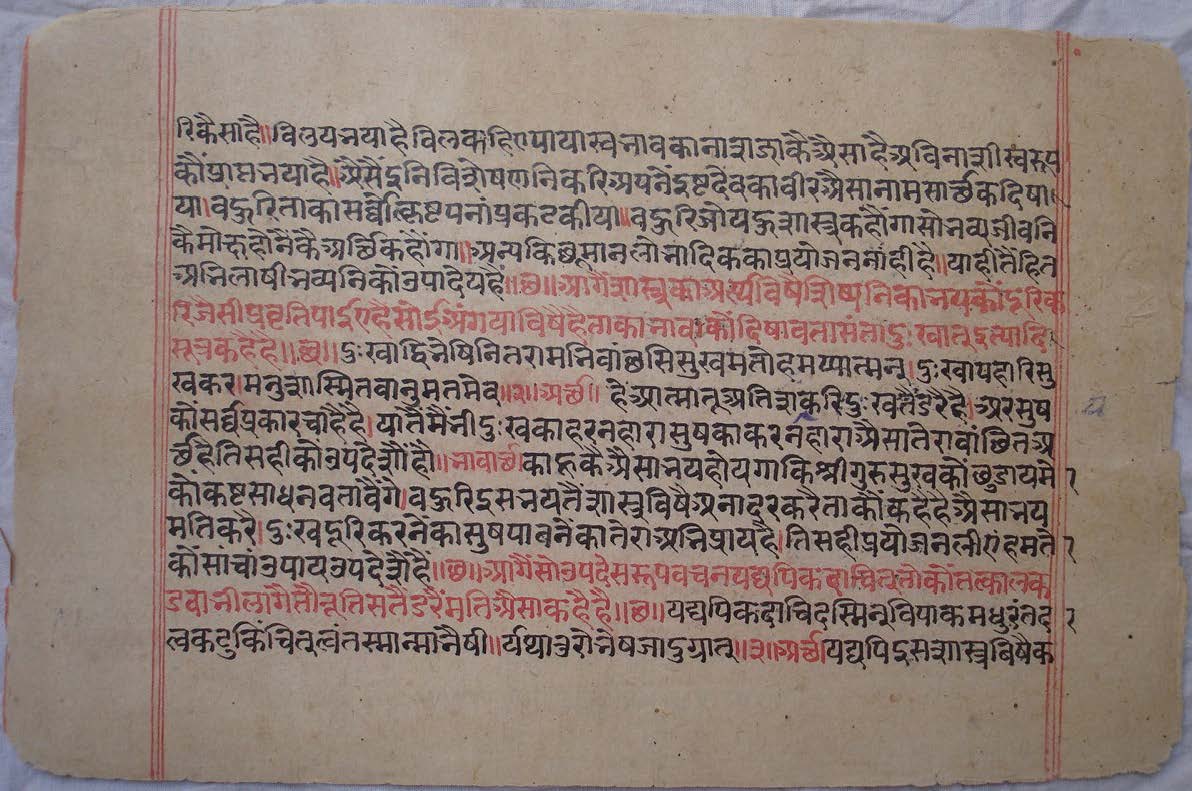 रिकैसाहै॥विलयनयाहैविलकहिएपायास्वभावकानाशजाकैअैसाहैअविनाशीस्वरूप
कौंप्राप्तभयाहै॥अैसैंदुनिविशेषणनिकरिअपनेंइष्टदेवकावीरअैसानामसार्थकदिषा
या।वहुरिताकासर्वोत्कृष्टपनांप्रकटकीया॥वहुरिजोयहुशास्त्रकहौंगासोभव्यजीवनि
कैमोक्षहोनैकैअर्थिकहौंगा॥अन्यकिछूमानलोभादिककाप्रयोजननांहीहै॥याहीतैंहित
अभिलाषीभव्यनिकौंउपादेयहै॥छ॥आगैंशास्त्रकाअर्थविषैशिष्यनिकाभयकौंदूरिक
रिजैसीप्रवृतिपाईएहैसोईअंगयाविषैहैताकाभावकौंदिषावतासंतादुःखात्इत्यादि
सूत्रकहैहै॥छ॥दुःखाद्विभेषिनितरामभिवांछसिसुखमतोहमप्यात्मन्।दुःखापहारिसु
खकरमनुशास्मितवानुमतमेव॥२॥अर्थ॥हेआत्मातूअतिशकरिदुःखतैंडरैहै।अरसुष
कौसर्वप्रकारचांहैहै।यातैंमैंभीदुःखकाहरनहारासुषकाकरनहाराअैसातेरावांछितअ
र्थहैतिसहीकौंउपदेशौंहौं॥भावार्थ॥काहूकैअैसाभयहोयगाकिश्रीगुरुसुखकौछुडायमे
कौंकष्टसाधनवतावैंगे।वहुरिइसभयतैंशास्त्रविषैअनादरकरैताकौंकहैहैअैसाभय
मतिकरै।दुःखदूरिकरनेकासुषपावनेकातेराअभिप्रायहै।तिसहीप्रयोजनलीएंहमतै
कौंसाचांउपायउपदेशैंहैं॥छ॥आगैंसोउपदेसरूपवचनयद्यपिकदाचित्तोकौंतत्कालक
डवाभीलागैतौभूतिसतैंडरैंमतिअैसाकहैहै॥छ॥यद्यपिकदाचिदस्मिन्विपाकमधुरंतद
त्वकटुकिंचित्।त्वंतस्मान्माभैषी॥र्यथातुरोभेषजादुग्रात्॥३॥अर्थ॥यद्यपिइसशास्त्रविषैक